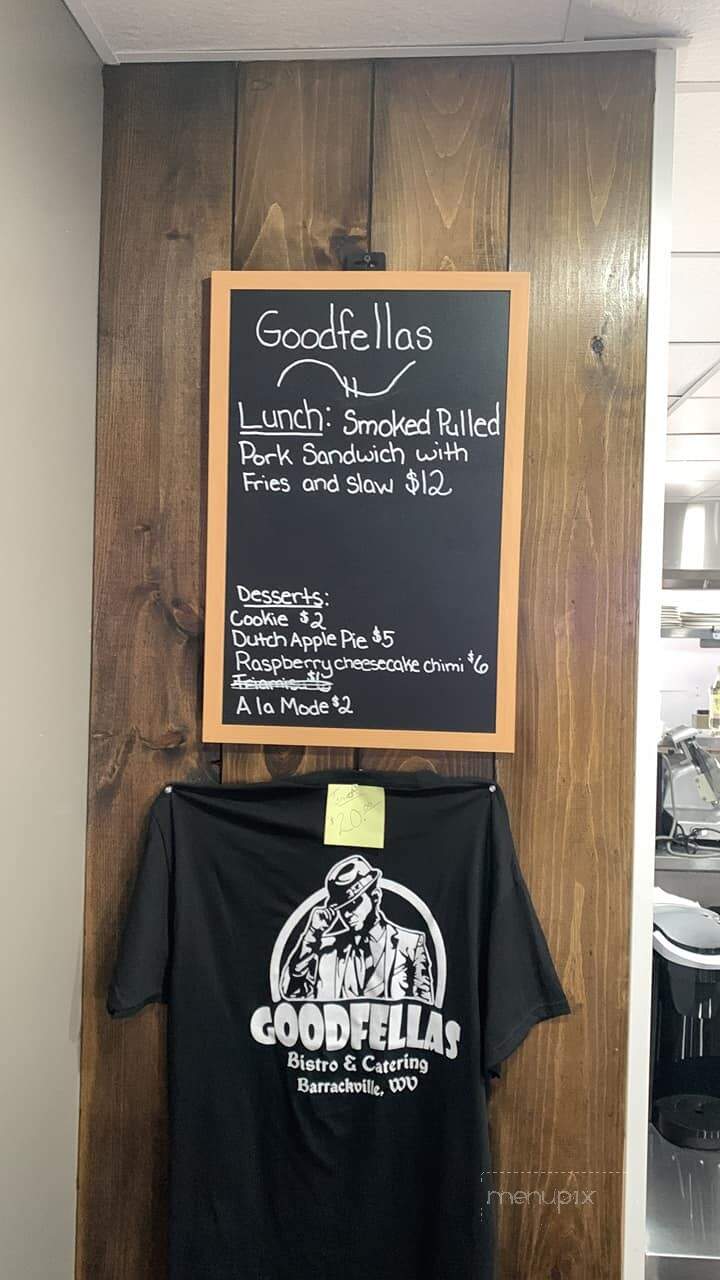 Goodfellas
Lunch: Smoked Pulled
Pork Sandwich with
Fries and Slaw $12
Desserts:
Cookie $2
Dutch Apple Pie $5
Raspberry cheesecake chimi $6
A la Mode $2
$20.00
GOODFELLAS
Bistro & Catering
Barrackville, WV
menupix